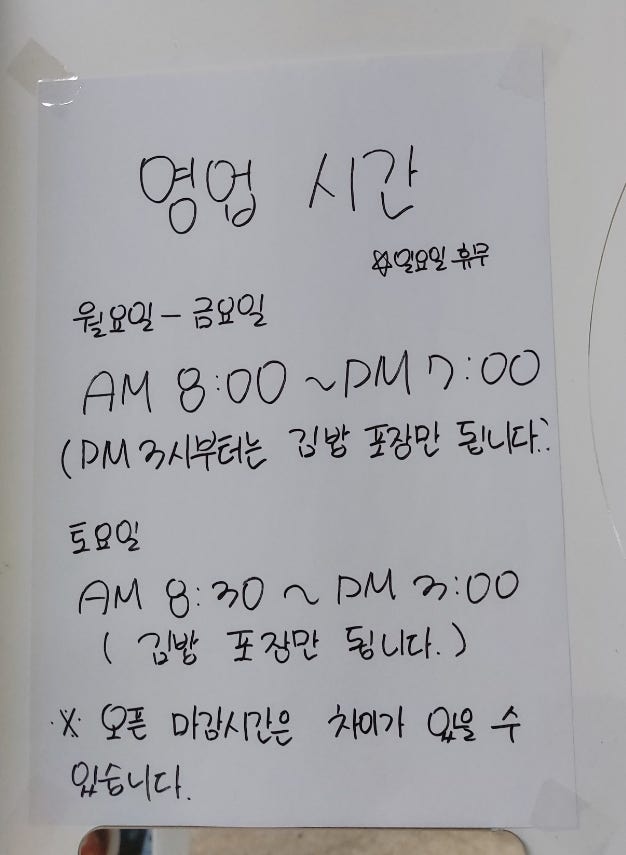 영업 시간
☆일요일 휴무
월요일 - 금요일
AM 8:00 ~ PM 7:00
(PM 3시부터는 김밥 포장만 됩니다.)
토요일
AM 8:30 ~ PM 3:00
( 김밥 포장만 됩니다.)
※ 오픈 마감시간은 차이가 있을 수
있습니다.